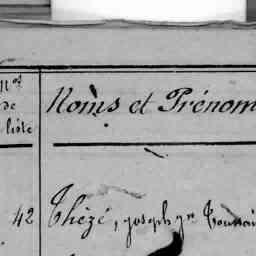 Nos
de
liste
Noms et Prénom
42 Thézé, joseph jn Toussai